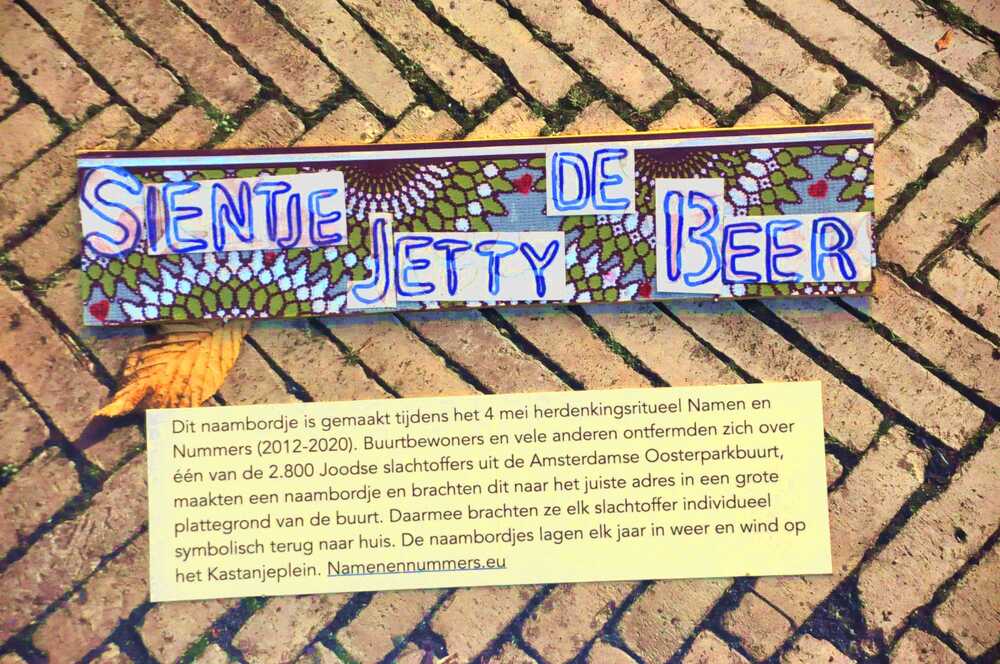 SIENTJE DE
JETTY BEER
Dit naambordje is gemaakt tijdens het 4 mei herdenkingsritueel Namen en
Nummers (2012-2020). Buurtbewoners en vele anderen ontfermden zich over
één van de 2.800 Joodse slachtoffers uit de Amsterdamse Oosterparkbuurt,
maakten een naambordje en brachten dit naar het juiste adres in een grote
plattegrond van de buurt. Daarmee brachten ze elk slachtoffer individueel
symbolisch terug naar huis. De naambordjes lagen elk jaar in weer en wind op
het Kastanjeplein. Namenennummers.eu